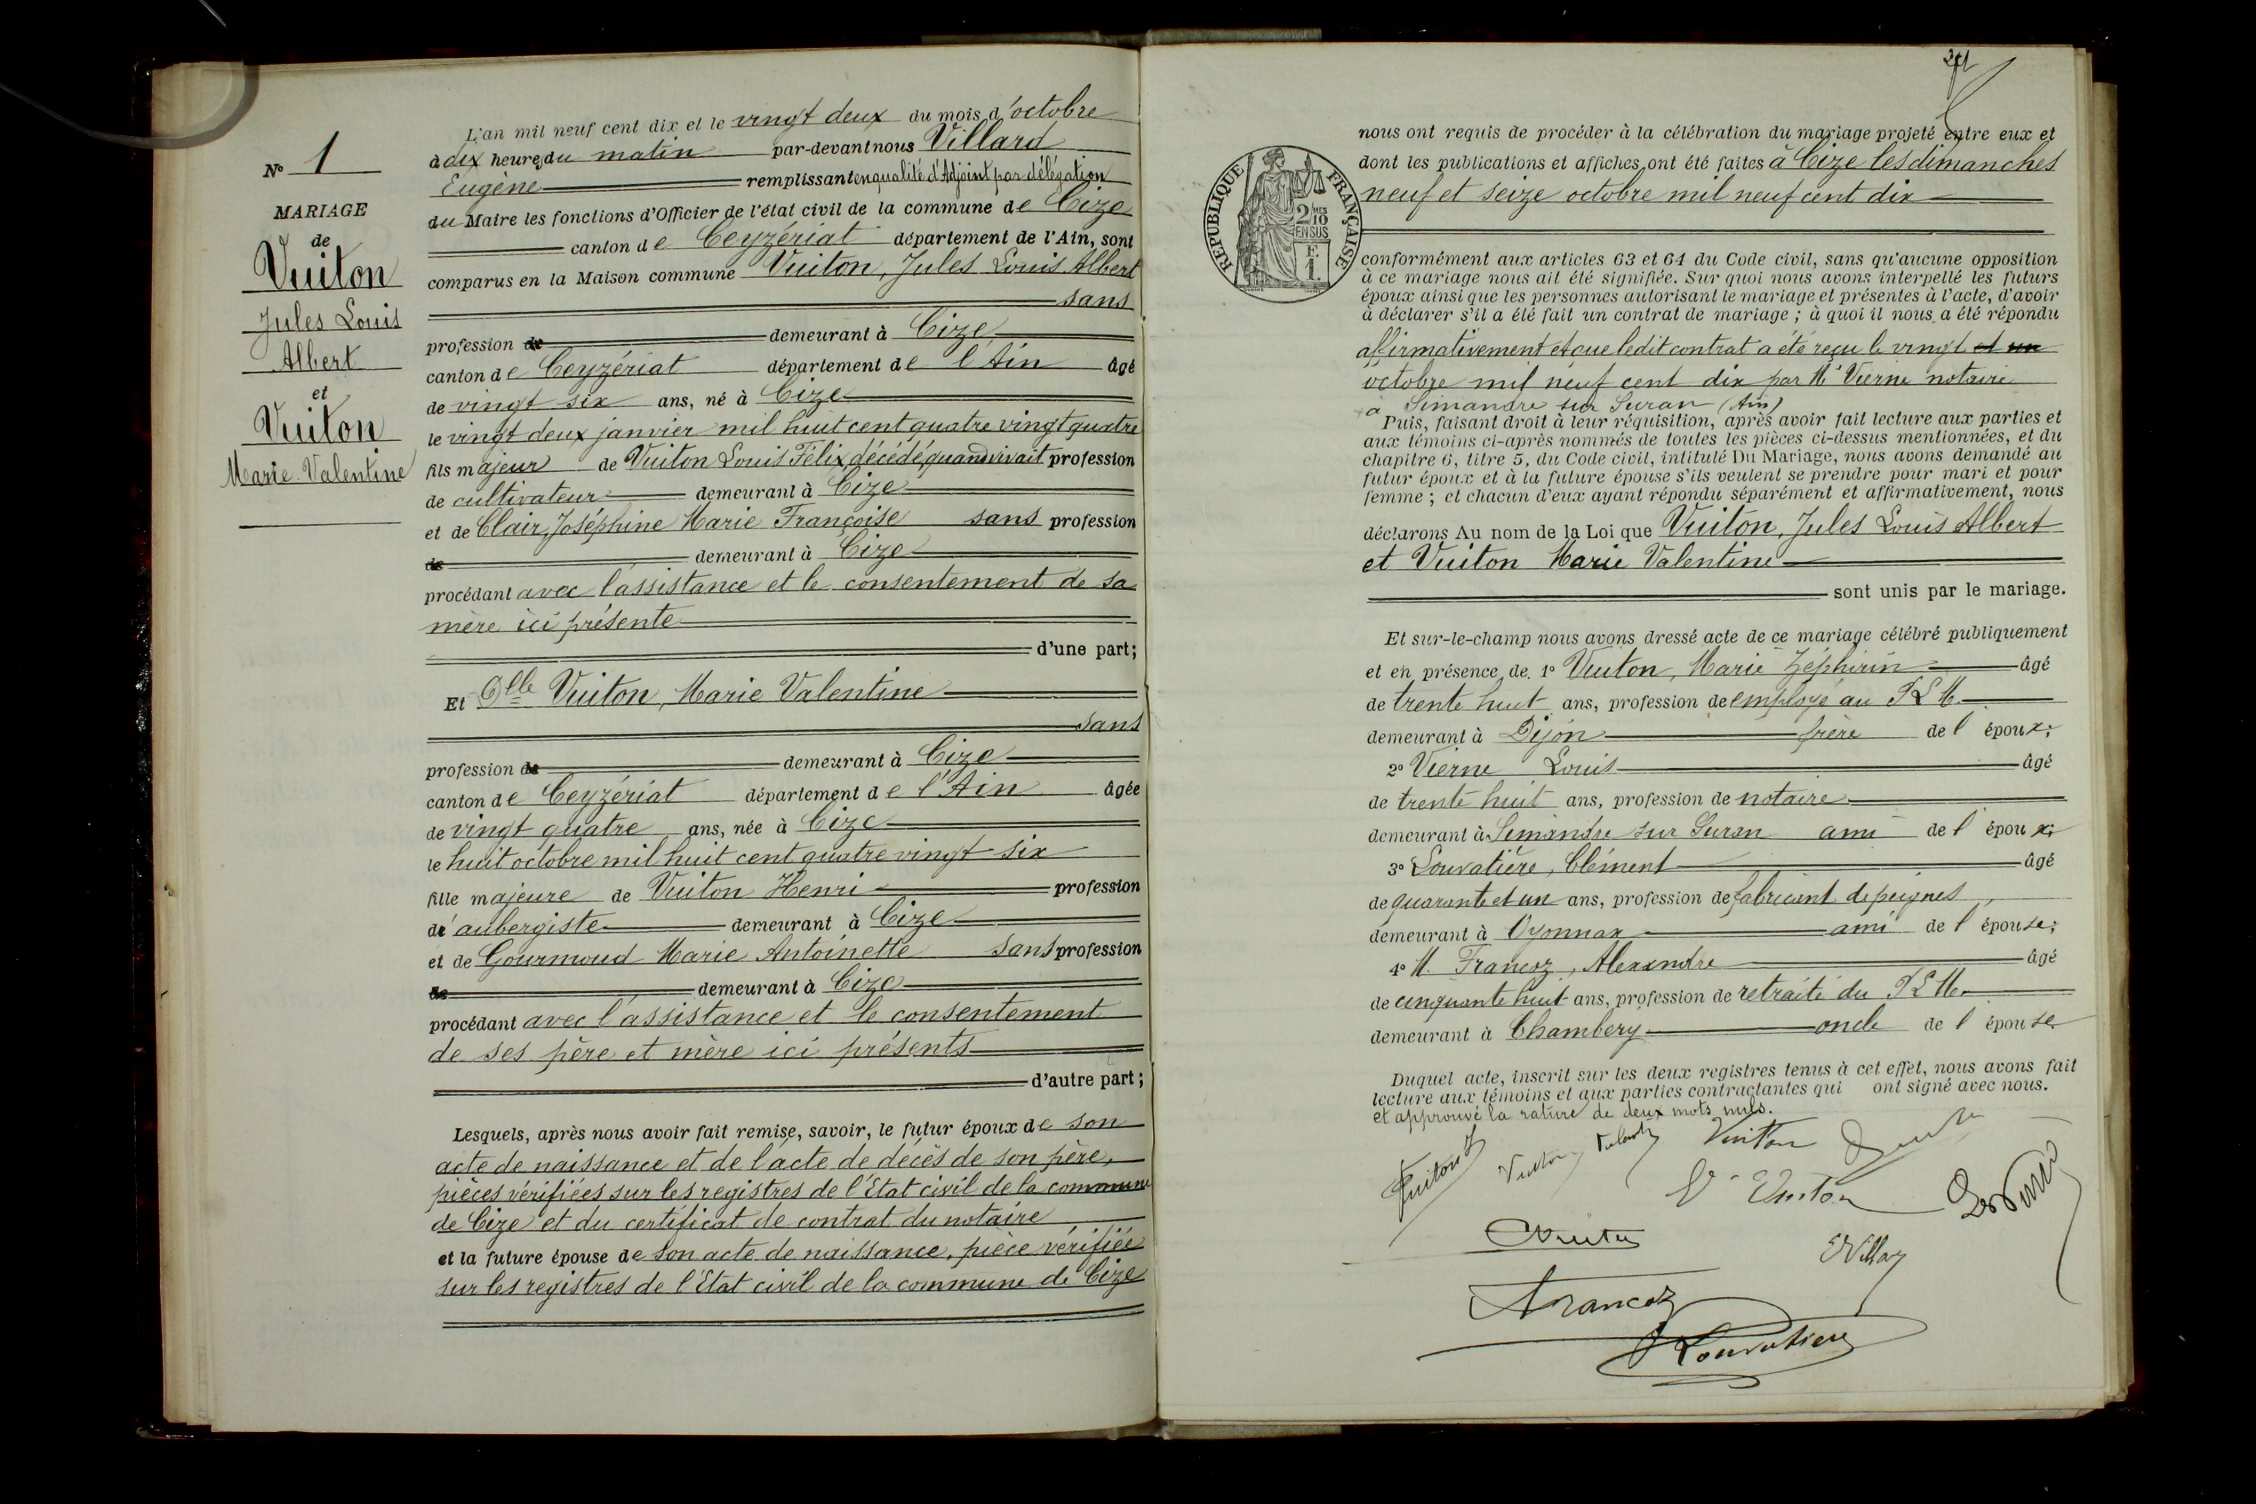 N° 1
MARIAGE
de
Vuiton
Jules Louis
Albert
et
Vuiton
Marie Valentine
L'an mil neuf cent dix et le vingt deux du mois d'octobre
à dix heures du matin par-devant nous Villard
Eugène remplissant en qualité d'Adjoint par délégation
du Maire les fonctions d'Officier de l'état civil de la commune de Cize
canton de Ceyzériat département de l'Ain, sont
comparus en la Maison commune Vuiton, Jules Louis Albert
sans
profession de demeurant à Cize
canton de Ceyzériat département de l'Ain âgé
de vingt six ans, né à Cize
le vingt deux janvier mil huit cent quatre vingt quatre
fils majeur de Vuiton Louis Félix, décédé, quand vivait profession
de cultivateur demeurant à Cize
et de Clair, Joséphine Marie Françoise sans profession
de demeurant à Cize
procédant avec l'assistance et le consentement de sa
mère ici présente
d'une part;
Et Dlle Vuiton, Marie Valentine
sans
profession de demeurant à Cize
canton de Ceyzériat département de l'Ain âgée
de vingt quatre ans, née à Cize
le huit octobre mil huit cent quatre vingt six
fille majeure de Vuiton Henri profession
d'aubergiste demeurant à Cize
et de Gourmoud Marie Antoinette sans profession
de demeurant à Cize
procédant avec l'assistance et le consentement
de ses père et mère ici présents
d'autre part;
Lesquels, après nous avoir fait remise, savoir, le futur époux de son
acte de naissance et de l'acte de décès de son père,
pièces vérifiées sur les registres de l'Etat civil de la commune
de Cize et du certificat de contrat du notaire
et la future épouse de son acte de naissance, pièce vérifiée
sur les registres de l'Etat civil de la commune de Cize
RÉPUBLIQUE FRANÇAISE
2/10
EN SUS
F.
1.
nous ont requis de procéder à la célébration du mariage projeté entre eux et
dont les publications et affiches, ont été faites à Cize les dimanches
neuf et seize octobre mil neuf cent dix
conformément aux articles 63 et 64 du Code civil, sans qu'aucune opposition
à ce mariage nous ait été signifiée. Sur quoi nous avons interpellé les futurs
époux ainsi que les personnes autorisant le mariage et présentes à l'acte, d'avoir
à déclarer s'il a été fait un contrat de mariage; à quoi il nous a été répondu
affirmativement et que ledit contrat a été reçu le vingt et un
octobre mil neuf cent dix par Me Vierne notaire
à Simandre sur Suran (Ain)
Puis, faisant droit à leur réquisition, après avoir fait lecture aux parties et
aux témoins ci-après nommés de toutes les pièces ci-dessus mentionnées, et du
chapitre 6, titre 5, du Code civil, intitulé Du Mariage, nous avons demandé au
futur époux et à la future épouse s'ils veulent se prendre pour mari et pour
femme; et chacun d'eux ayant répondu séparément et affirmativement, nous
déclarons Au nom de la Loi que Vuiton, Jules Louis Albert
et Vuiton Marie Valentine
sont unis par le mariage.
Et sur-le-champ nous avons dressé acte de ce mariage célébré publiquement
et en présence de. 1° Vuiton, Marie Zéphirin âgé
de trente huit ans, profession de employé au P L M.
demeurant à Dijon frère de l'époux;
2° Vierne Louis âgé
de trente huit ans, profession de notaire
demeurant à Simandre sur Suran ami de l'époux;
3° Louvatière, Clément âgé
de quarante et un ans, profession de fabricant de peignes
demeurant à Oyonnax ami de l'épouse;
4° M. Francoz, Alexandre âgé
de cinquante huit ans, profession de retraité du P L M.
demeurant à Chambéry oncle de l'épouse
Duquel acte, inscrit sur les deux registres tenus à cet effet, nous avons fait
lecture aux témoins et aux parties contractantes qui ont signé avec nous.
et approuvé la rature de deux mots nuls.
Vuiton
Vuiton
Vuiton
V. Vuiton
EVillard
AFrancoz
Louvatière